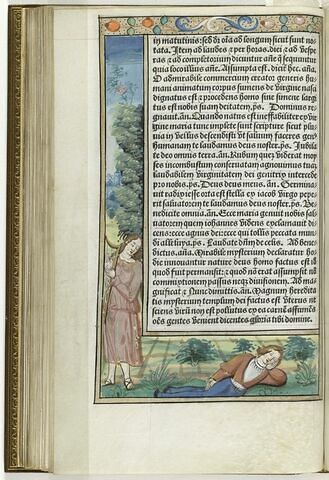 in matutinis: sed di oña ad longum sicut sunt no
tata. Item ad laudes z per horas. dici z ad vespe
ras z ad completorium dicuntur añe q̃ sequuntur
quia loco illius añe. Assumpta est. dicit̃ hec. aña.
O admirabile commercium creator generis hu
mani animatum corpus sumens de virgine nasci
dignatus est z procedens homo sine semine largi
tus est nobis suam deitatem. ps. Dominus re
gnauit. añ. Quando natus es ineffabiliter ex vir
gine maria tunc implete sunt scripture sicut plu
uia in vellus descendisti vt saluum faceres gen⁹
humanum te laudamus deus noster. ps. Jubila
te deo omnis terra. añ. Rubum quem viderat moy
ses incombustum conseruatam agnouimus tuam
laudabilem virginitatem dei genitrix intercede
pro nobis. ps. Deus deus meus. añ. Germina
uit radix iesse orta est stella ex iacob virgo pepe
rit saluatorem te laudamus deus noster. ps. Be
nedicite omnia. añ. Ecce maria genuit nobis sal
uatorem quem iohannes videns exclamauit di
cens: ecce agnus dei: ecce qui tollit peccata mun
di alleluya. ps. Laudate dñm de celis. Ad bene
dictus. aña. Mirabile mysterium declaratur ho
die innouantur nature deus homo factus est id
quod fuit permansit: z quod nõ erat assumpsit nõ
commixtionem passus neq; diuisionem. Ad ma
gnificat z Nunc dimittis. añ. Magnum heredita
tis mysterium templum dei factus est vterus ne
sciens virũ non est pollutus ex ea carnẽ assumẽs
oẽs gentes venient dicentes gloria tibi domine.